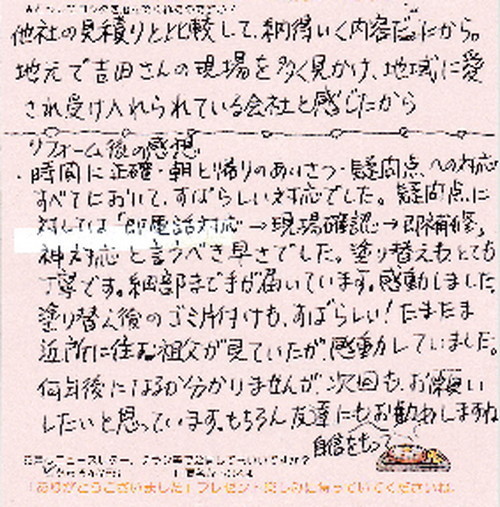 他社の見積りと比較して、納得いく内容だったから。
地元で吉田さんの現場を多く見かけ、地域に愛
され受け入れられている会社と感じたから
リフォーム後の感想
・時間に正確・朝と帰りのあいさつ・疑問点への対応
すべてにおいて、すばらしい対応でした。疑問点に
対しては「即電話対応→現場確認→即補修」
神対応と言うべき早さでした。塗り替えもとても
丁寧です。細部まで手が届いています。感動しました
塗り替え後のゴミ片付けも、すばらしい！たまたま
近所に住む祖父が見ていたが、感動していました。
何年後になるか分かりませんが、次回も、お願い
したいと思っています。もちろん友達にもお勧めしますね
自信をもって
「ありがとうございました」プレゼント楽しみに待っていてくださいね。